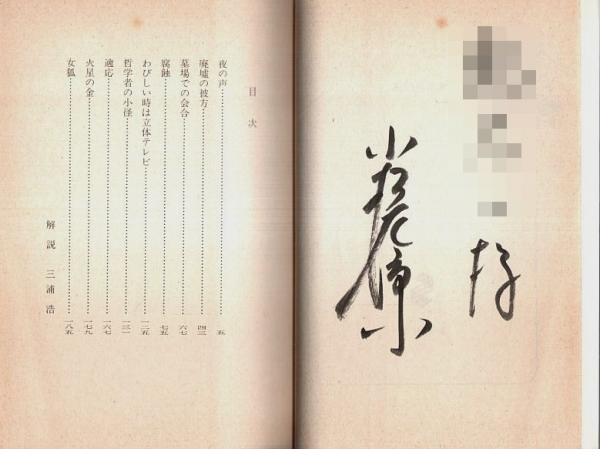 様
小松左京
目次
夜の声……五
廃墟の彼方……四三
墓場での会合……六七
腐蝕……七五
わびしい時は立体テレビ……一二五
哲学者の小径……一三一
適応……一六七
火星の金……一七九
女狐……一八五
解説 三浦浩